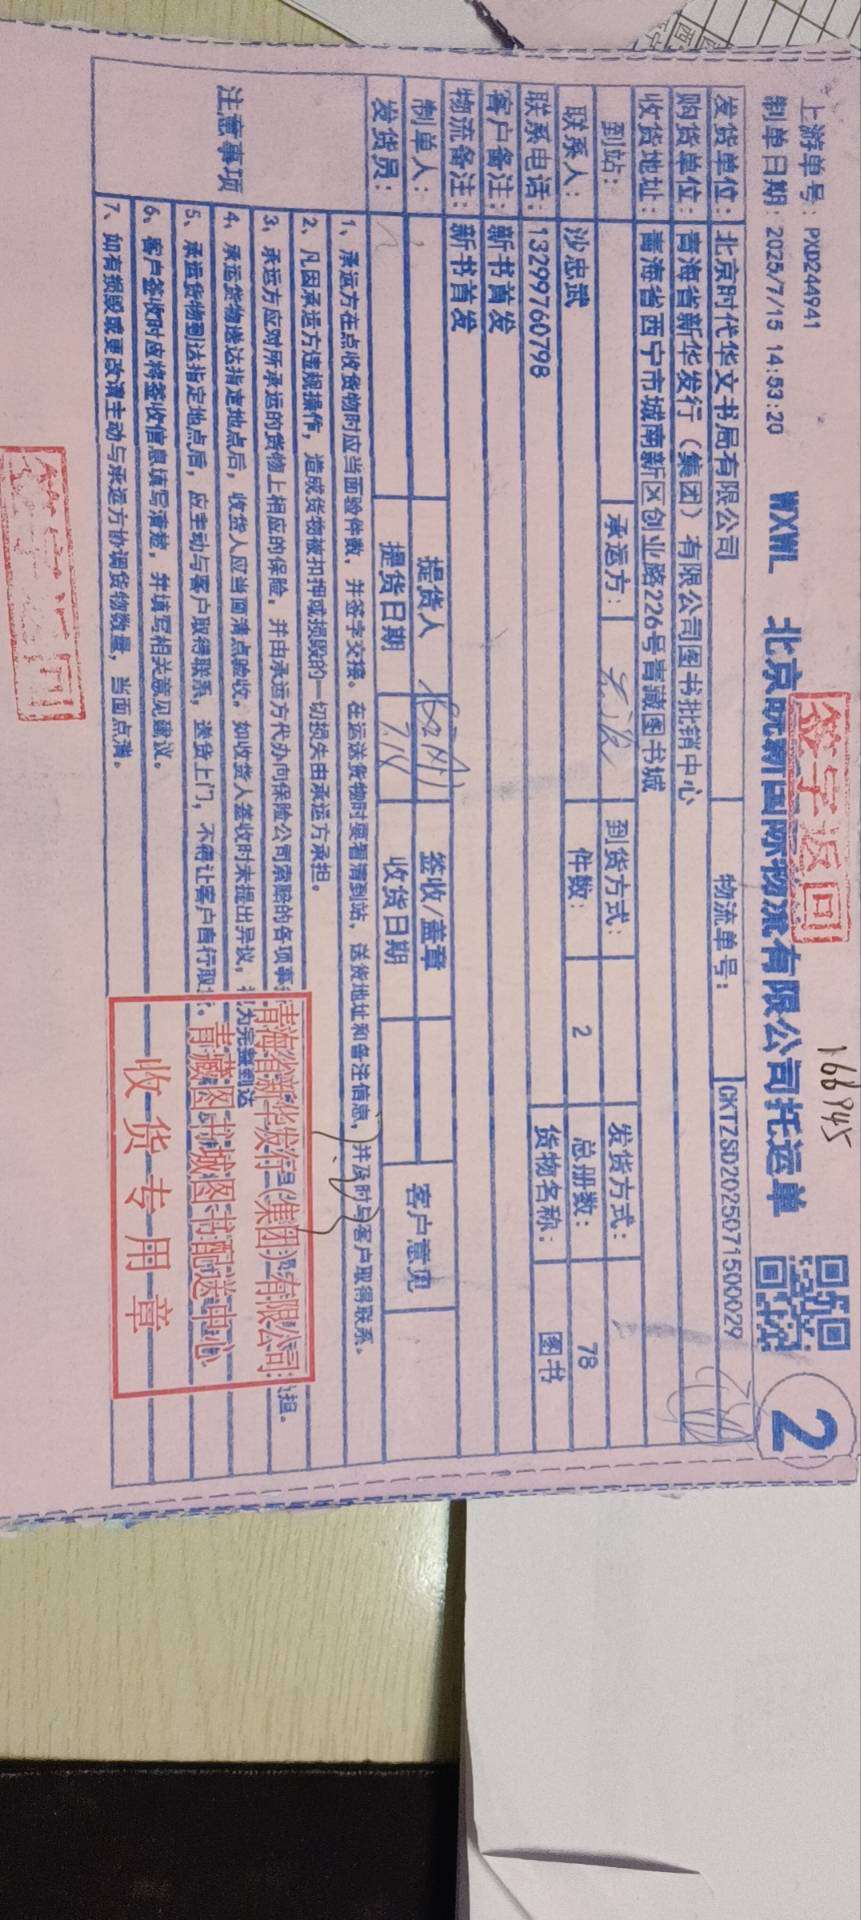 上游单号：PXD244941
166945
制单日期：2025/7/15 14:53:20
WXWL 北京皖新国际物流有限公司托运单
签字返回
2
发货单位：北京时代华文书局有限公司 物流单号：CKTZSD2025071500029
购货单位：青海省新华发行（集团）有限公司图书批销中心
收货地址：青海省西宁市城南新区创业路226号青藏图书城
到站： 承运方： 到货方式： 发货方式：
联系人：沙忠武 件数：2 总册数：78
联系电话：13299760798 货物名称：图书
客户备注：新书首发
物流备注：新书首发
制单人： 提货人 签收/盖章 客户意见
发货员： 提货日期 收货日期
注意事项
1、承运方在点收货物时应当面验件数，并签字交接。在运送货物时要看清到站，送货地址和备注信息，并及时与客户取得联系。
2、凡因承运方违规操作，造成货物被扣押或损毁的一切损失由承运方承担。
3、承运方应对所承运的货物上相应的保险，并由承运方代办向保险公司索赔的各项事 担。
4、承运货物送达指定地点后，收货人应当面清点验收。如收货人签收时未提出异议， 为完整到达
5、承运货物到达指定地点后，应主动与客户取得联系，送货上门，不得让客户自行取
6、客户签收时应将签收信息填写清楚，并填写相关意见建议。
7、如有损毁或更改请主动与承运方协调货物数量，当面点清。
青海省新华发行(集团)有限公司
青藏图书城图书配送中心
收货专用章